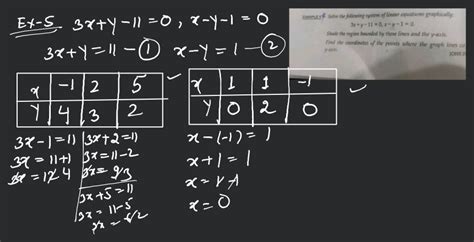 Ex-5 3x+y-11=0, x-y-1=0
3x+y=11-① x-y=1-②
x | -1 | 2 | 5
y | 4 | 3 | 2
x | 1 | 1 | -1
y | 0 | 2 | 0
3x-1=11
3x=11+1
3x+2=11
3x=11-2
3x+5=11
3x=11-5
x-(-1)=1
x+1=1
x=1-1
x=0
Solve the following system of linear equations graphically:
3x + y - 11 = 0, x - y - 1 = 0.
Shade the region bounded by these lines and the y-axis.
Find the coordinates of the points where the graph lines
y-axis.